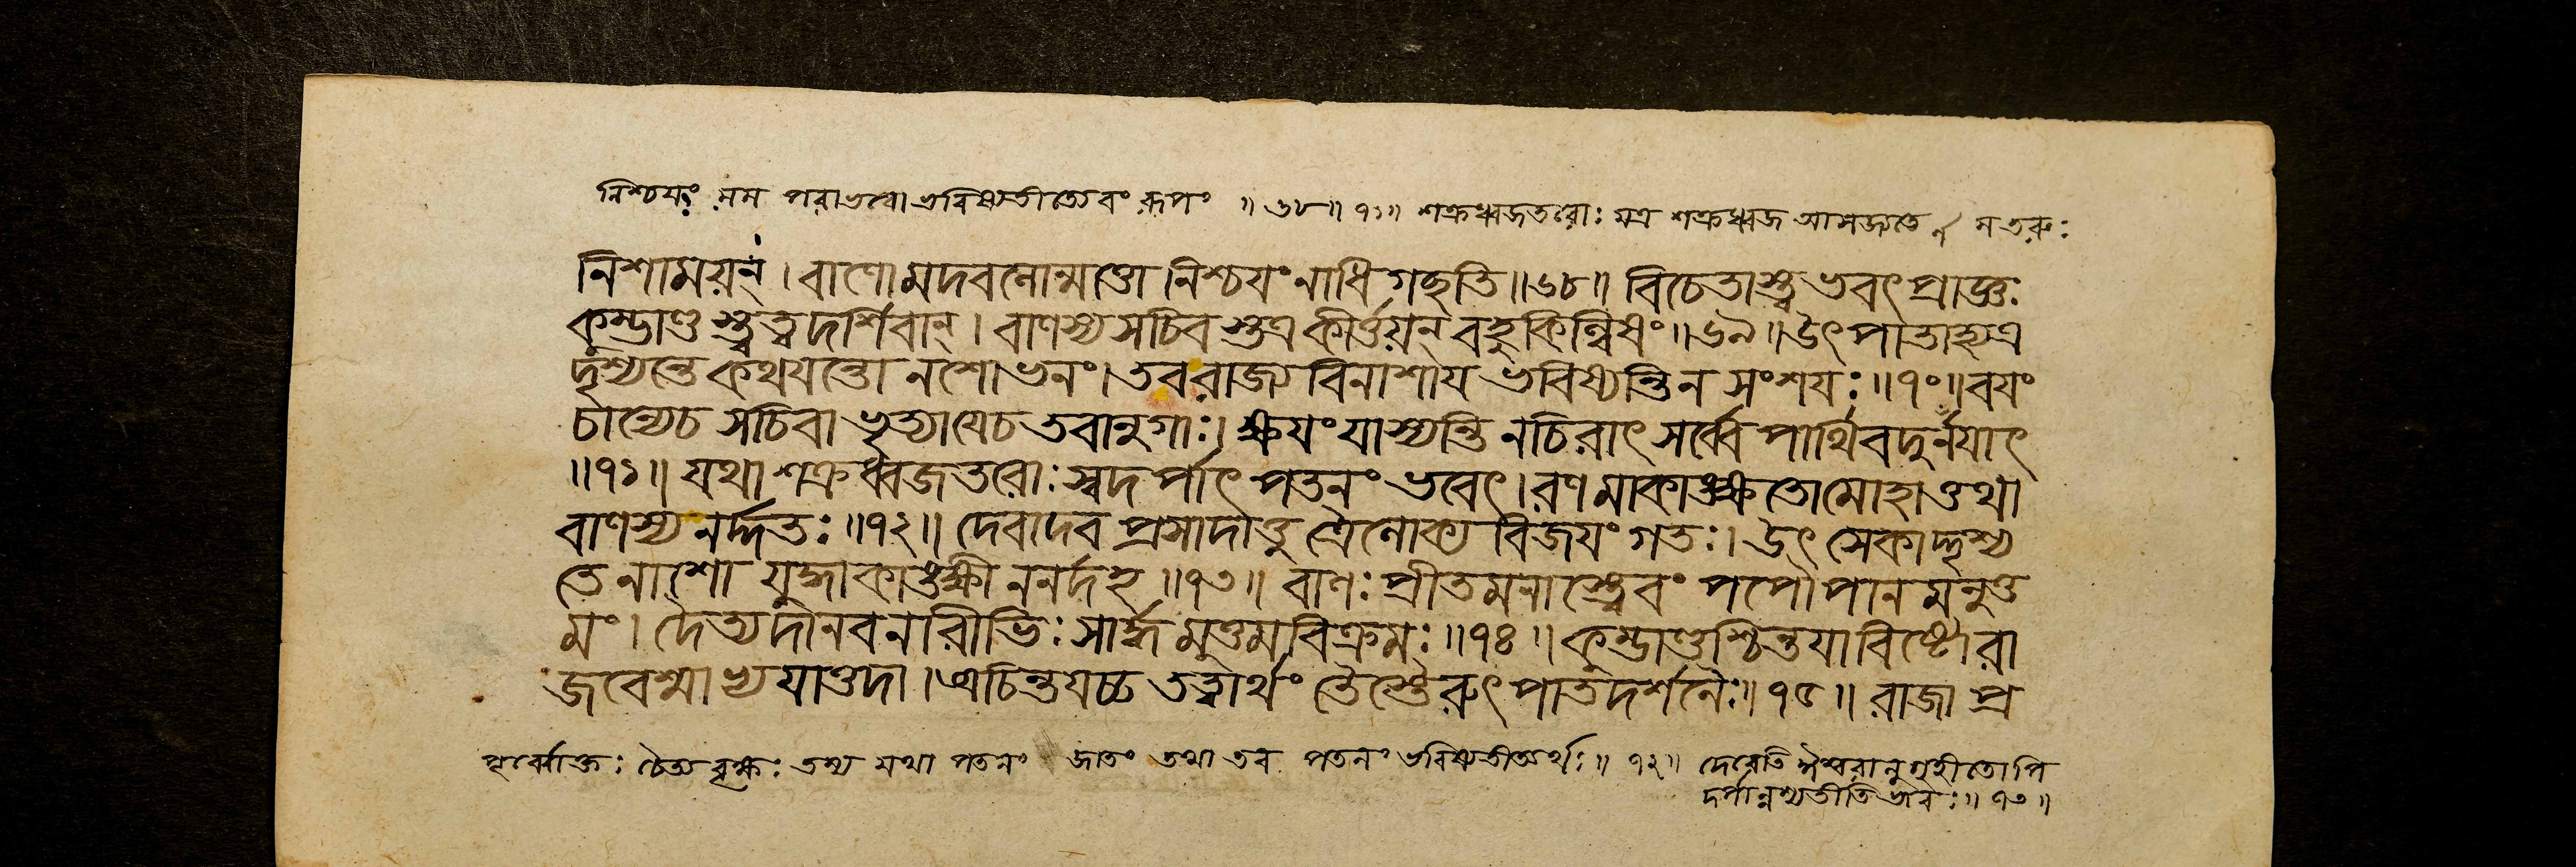 নিশ্চয়ং মম পরাভবো ভবিষ্যতীত্যেবং রূপং ॥ ৬৮ ॥ ৭১ ॥ শক্রধ্বজতরোঃ যত্র শক্রধ্বজ আসজ্যতে স তরুঃ
নিশাময়ন্ । বাণো মদবলোন্মত্তো নিশ্চয়ং নাধিগচ্ছতি ॥ ৬৮ ॥ বিচেতাস্ত্বভবৎ প্রাজ্ঞঃ
কুম্ভাণ্ডস্তত্ত্বদর্শিবান্ । বাণস্য সচিবস্তত্র কীর্ত্তয়ন্ বহুকিল্বিষং ॥ ৬৯ ॥ উৎপাতাহ্যত্র
দৃশ্যন্তে কথয়ন্তো ন শোভনং । তব রাজ্য বিনাশায় ভবিষ্যন্তি ন সংশয়ঃ ॥ ৭০ ॥ বয়ং
চান্যেচ সচিবা ভৃত্যা যেচ তবানুগাঃ । ক্ষয়ং যাস্যন্তি নচিরাৎ সর্ব্বে পার্থিবদুর্নয়াৎ
॥ ৭১ ॥ যথা শক্রধ্বজতরোঃ স্বদর্পাৎ পতনং ভবেৎ । রণমাকাঙ্ক্ষতো মোহাত্তথা
বাণস্য নর্দ্দতঃ ॥ ৭২ ॥ দেবাদেব প্রসাদাত্তু ত্রৈলোক্য বিজয়ং গতঃ । উৎসেকাদ্দৃশ্য
তে নাশো যুদ্ধাকাঙ্ক্ষী ননর্দহ ॥ ৭৩ ॥ বাণঃ প্রীতমনাস্ত্বেবং পপৌ পানমনুত্ত
মং । দৈত্যদানবনারীভিঃ সার্দ্ধমুত্তমবিক্রমঃ ॥ ৭৪ ॥ কুম্ভাণ্ডশ্চিন্তয়াবিষ্টো রা
জবেশ্মাভ্যয়াত্তদা । অচিন্তয়চ্চ তত্ত্বার্থং তৈস্তৈরুৎপাতদর্শনৈঃ ॥ ৭৫ ॥ রাজা প্র
পূর্ব্বোক্তঃ চৈত্যবৃক্ষঃ তস্য যথা পতনং জাতং তথা তব পতনং ভবিষ্যতীত্যর্থঃ ॥ ৭২ ॥ দেবেতি ঈশ্বরানুগৃহীতোপি
দর্পান্নশ্যতীতি ভাবঃ ॥ ৭৩ ॥